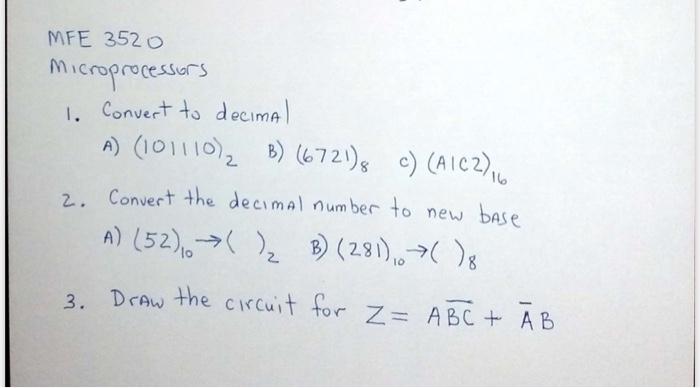 MFE 3520
Microprocessors
1. Convert to decimal
A) (101110)₂ B) (6721)₈ C) (A1C2)₁₆
2. Convert the decimal number to new base
A) (52)₁₀ → ( )₂ B) (281)₁₀ → ( )₈
3. Draw the circuit for Z = A B̅C̅ + A̅ B